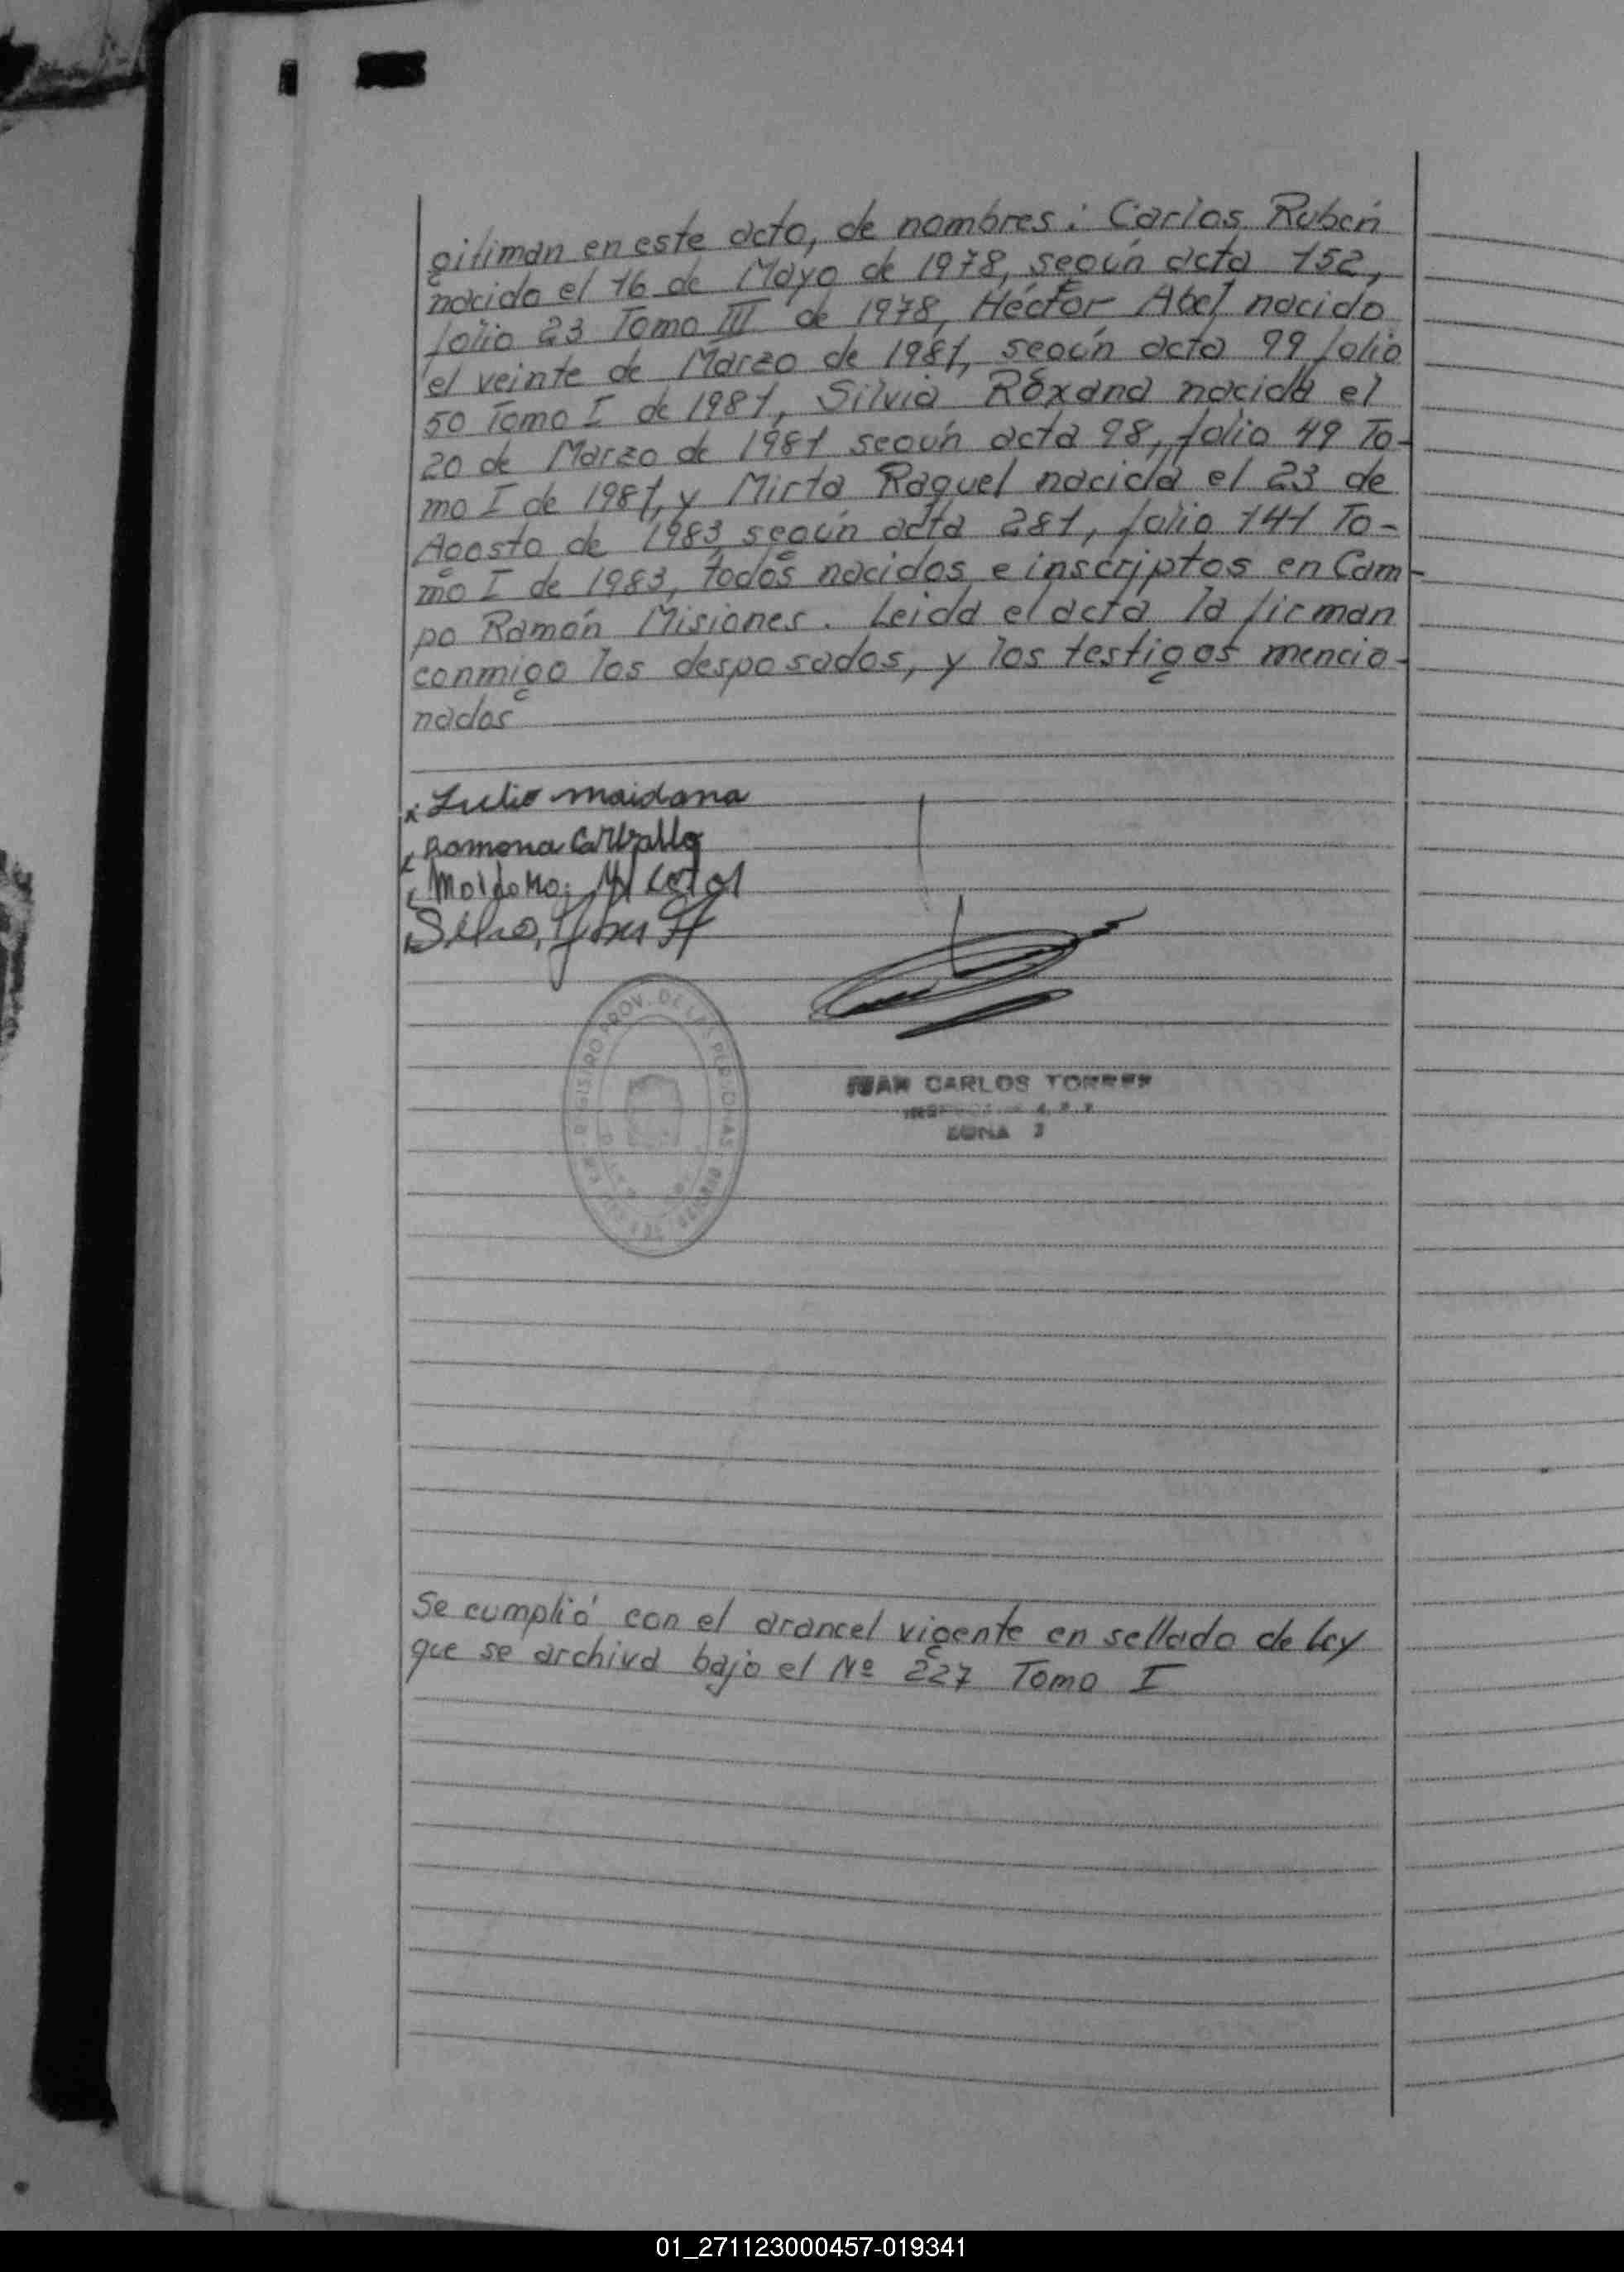 gitiman en este acto, de nombres: Carlos Rubén
nacido el 16 de Mayo de 1978, según acta 152,
folio 23 Tomo III de 1978, Héctor Abel nacido
el veinte de Marzo de 1981, según acta 99 folio
50 Tomo I de 1981, Silvia Roxana nacida el
20 de Marzo de 1981 según acta 98, folio 49 To-
mo I de 1981, y Mirta Raquel nacida el 23 de
Agosto de 1983 según acta 281, folio 141 To-
mo I de 1983, todos nacidos e inscriptos en Cam-
po Ramón Misiones. Leida el acta la firman
conmigo los desposados, y los testigos mencio-
nados
x Julio maidana
Ramona Carballo
REGISTRO PROV. DE LAS PERSONAS
JUAN CARLOS TORRES
ZONA
Se cumplió con el arancel vigente en sellado de Ley
que se archiva bajo el Nº 227 Tomo I
01_271123000457-019341